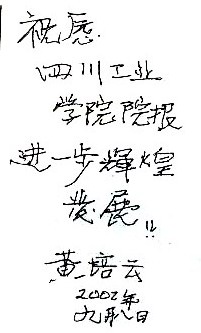 祝愿
四川工业
学院院报
进一步輝煌
发展!!
黄培云
2002年
九月八日